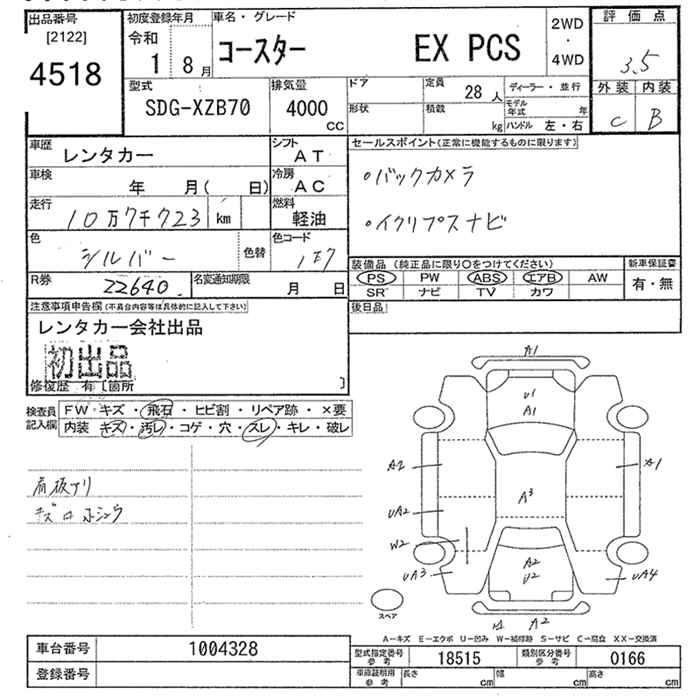 出品番号 初度登録年月 車名・グレード 2WD 評価点
[2122] 令和 ・
4518 1 8月 コースター EX PCS 4WD 3.5
型式 排気量 ドア 定員 28人 ディーラー・並行 外装 内装
SDG-XZB70 4000 CC 形状 積載 kg モデル年式 年 C B
ハンドル 左・右
車歴 レンタカー シフト AT セールスポイント(正常に機能するものに限ります)
車検 年 月( 日) 冷房 AC ・バックカメラ
走行 10万7千723 km 燃料 軽油 ・イクリプスナビ
色 シルバー 色替 色コード 1E7
装備品 (純正品に限り○をつけてください) 新車保証書
R券 22640 名変通知期限 月 日 PS PW ABS エアB AW 有・無
SR ナビ TV カワ
注意事項申告欄(不具合内容等は具体的に記入して下さい) 後日品
レンタカー会社出品
初出品
修復歴 有 [箇所 ]
検査員 FW キズ・飛石・ヒビ割・リペア跡・×要
記入欄 内装 キズ・汚レ・コゲ・穴・スレ・キレ・破レ
A1
U1
A1
A2 A1
A3
UA2
W2
UA3 A2 UA4
U2
A2
スペア
A-キズ E-エクボ U-凹み W-補修跡 S-サビ C-腐食 XX-交換済
車台番号 1004328 型式指定番号 参考 18515 類別区分番号 参考 0166
登録番号 車庫証明用 参考 長さ cm 幅 cm 高さ cm